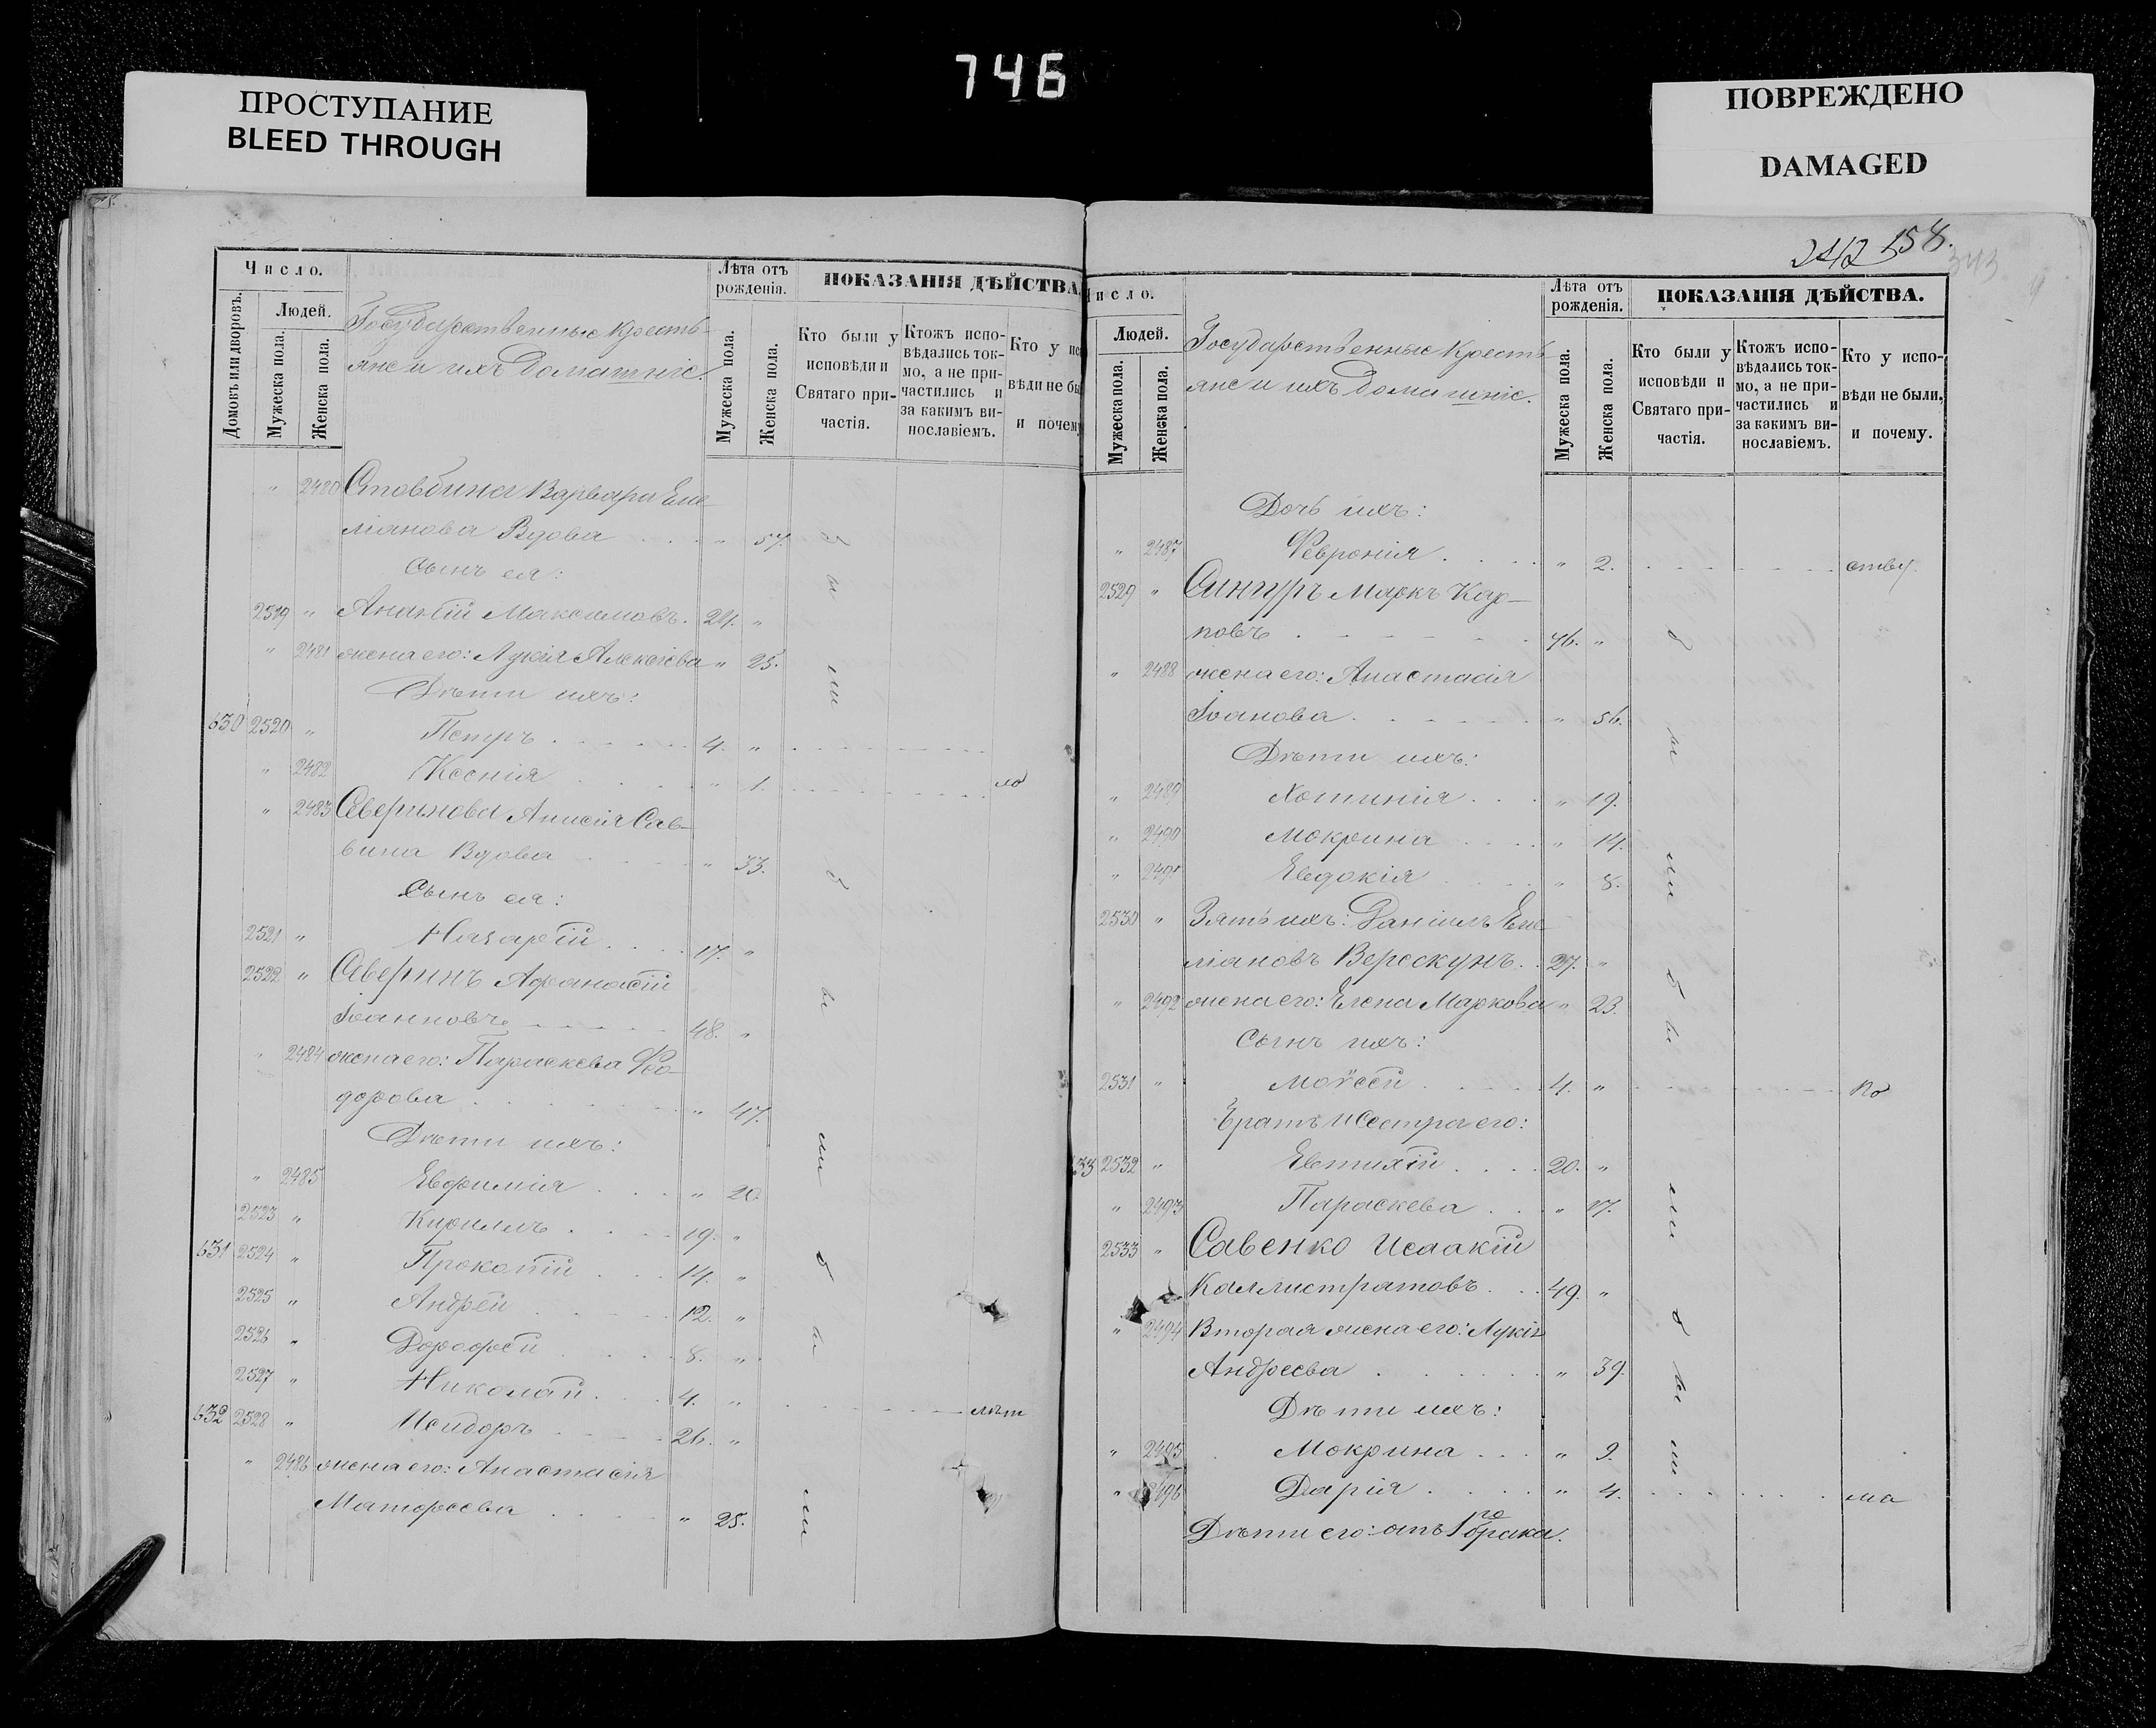 746
ПРОСТУПАНИЕ
BLEED THROUGH
ПОВРЕЖДЕНО
DAMAGED
Число.
Домовъ или дворовъ.
Людей.
Мужеска пола.
Женска пола.
Государственные кресть-
яне и ихъ домашніе.
Лѣта отъ рожденія.
Мужеска пола.
Женска пола.
ПОКАЗАНІЯ ДѢЙСТВА
Кто были у исповѣди и Святаго при-частія.
Ктожъ испо-вѣдались ток-мо, а не при-частились и за какимъ ви-нославіемъ.
Кто у исп
вѣди не бы
и почему
" 2480 Стовбина Варвара Еме-
ліанова Вдова " 57.
Сынъ ея:
2519 " Ананій Максимовъ. 24. "
" 2481 жена его: Лукія Алексіева " 25.
Дѣти ихъ:
630 2520 " Петръ 4. "
" 2482 Ксенія " 1. ло
" 2483 Северинова Анисія Сав-
вина Вдова " 33.
Сынъ ея:
2521 " Назарій 17. "
2522 " Северинъ Афанасій
Іоанновъ 48. "
" 2484 жена его: Параскева Ѳео-
дорова " 47.
Дѣти ихъ:
" 2485 Евфимія " 20.
2523 " Кириллъ 19. "
631 2524 " Прокопій 14. "
2525 " Андрей 12. "
2526 " Дорофей 8. "
2527 " Николай 4. " лѣт
632 2528 " Исидоръ 26. "
" 2486 жена его: Анастасія
Матфеева " 25.
были
были
242 158.
343
Число.
Людей.
Мужеска пола.
Женска пола.
Государственные кресть-
яне и ихъ домашніе.
Лѣта отъ рожденія.
Мужеска пола.
Женска пола.
ПОКАЗАНІЯ ДѢЙСТВА.
Кто были у исповѣди и Святаго при-частія.
Ктожъ испо-вѣдались ток-мо, а не при-частились и за какимъ ви-нославіемъ.
Кто у испо-вѣди не были, и почему.
Дочь ихъ:
" 2487 Февронія " 2. ству.
2529 " Синпуръ Маркъ Кар-
повъ 76. "
" 2488 жена его: Анастасія
Іоанова " 56.
Дѣти ихъ:
" 2489 Хотинія " 19.
" 2490 Мокрина " 14.
" 2491 Евдокія " 8.
2530 " Зять ихъ: Даніилъ Еме-
ліановъ Верескунъ 27. "
" 2492 жена его: Елена Маркова " 23.
Сынъ ихъ:
2531 " Моѵсей 4. " по
Братъ и Сестра его:
33 2532 " Евтихій 20. "
" 2493 Параскева " 17.
2533 " Савенко Исаакій
Каллистратовъ 49. "
" 2494 Вторая жена его: Лукія
Андреева " 39.
Дѣти ихъ:
" 2495 Мокрина " 9.
" 2496 Дарія " 4. ма
Дѣти его: отъ 1го брака.
были
были